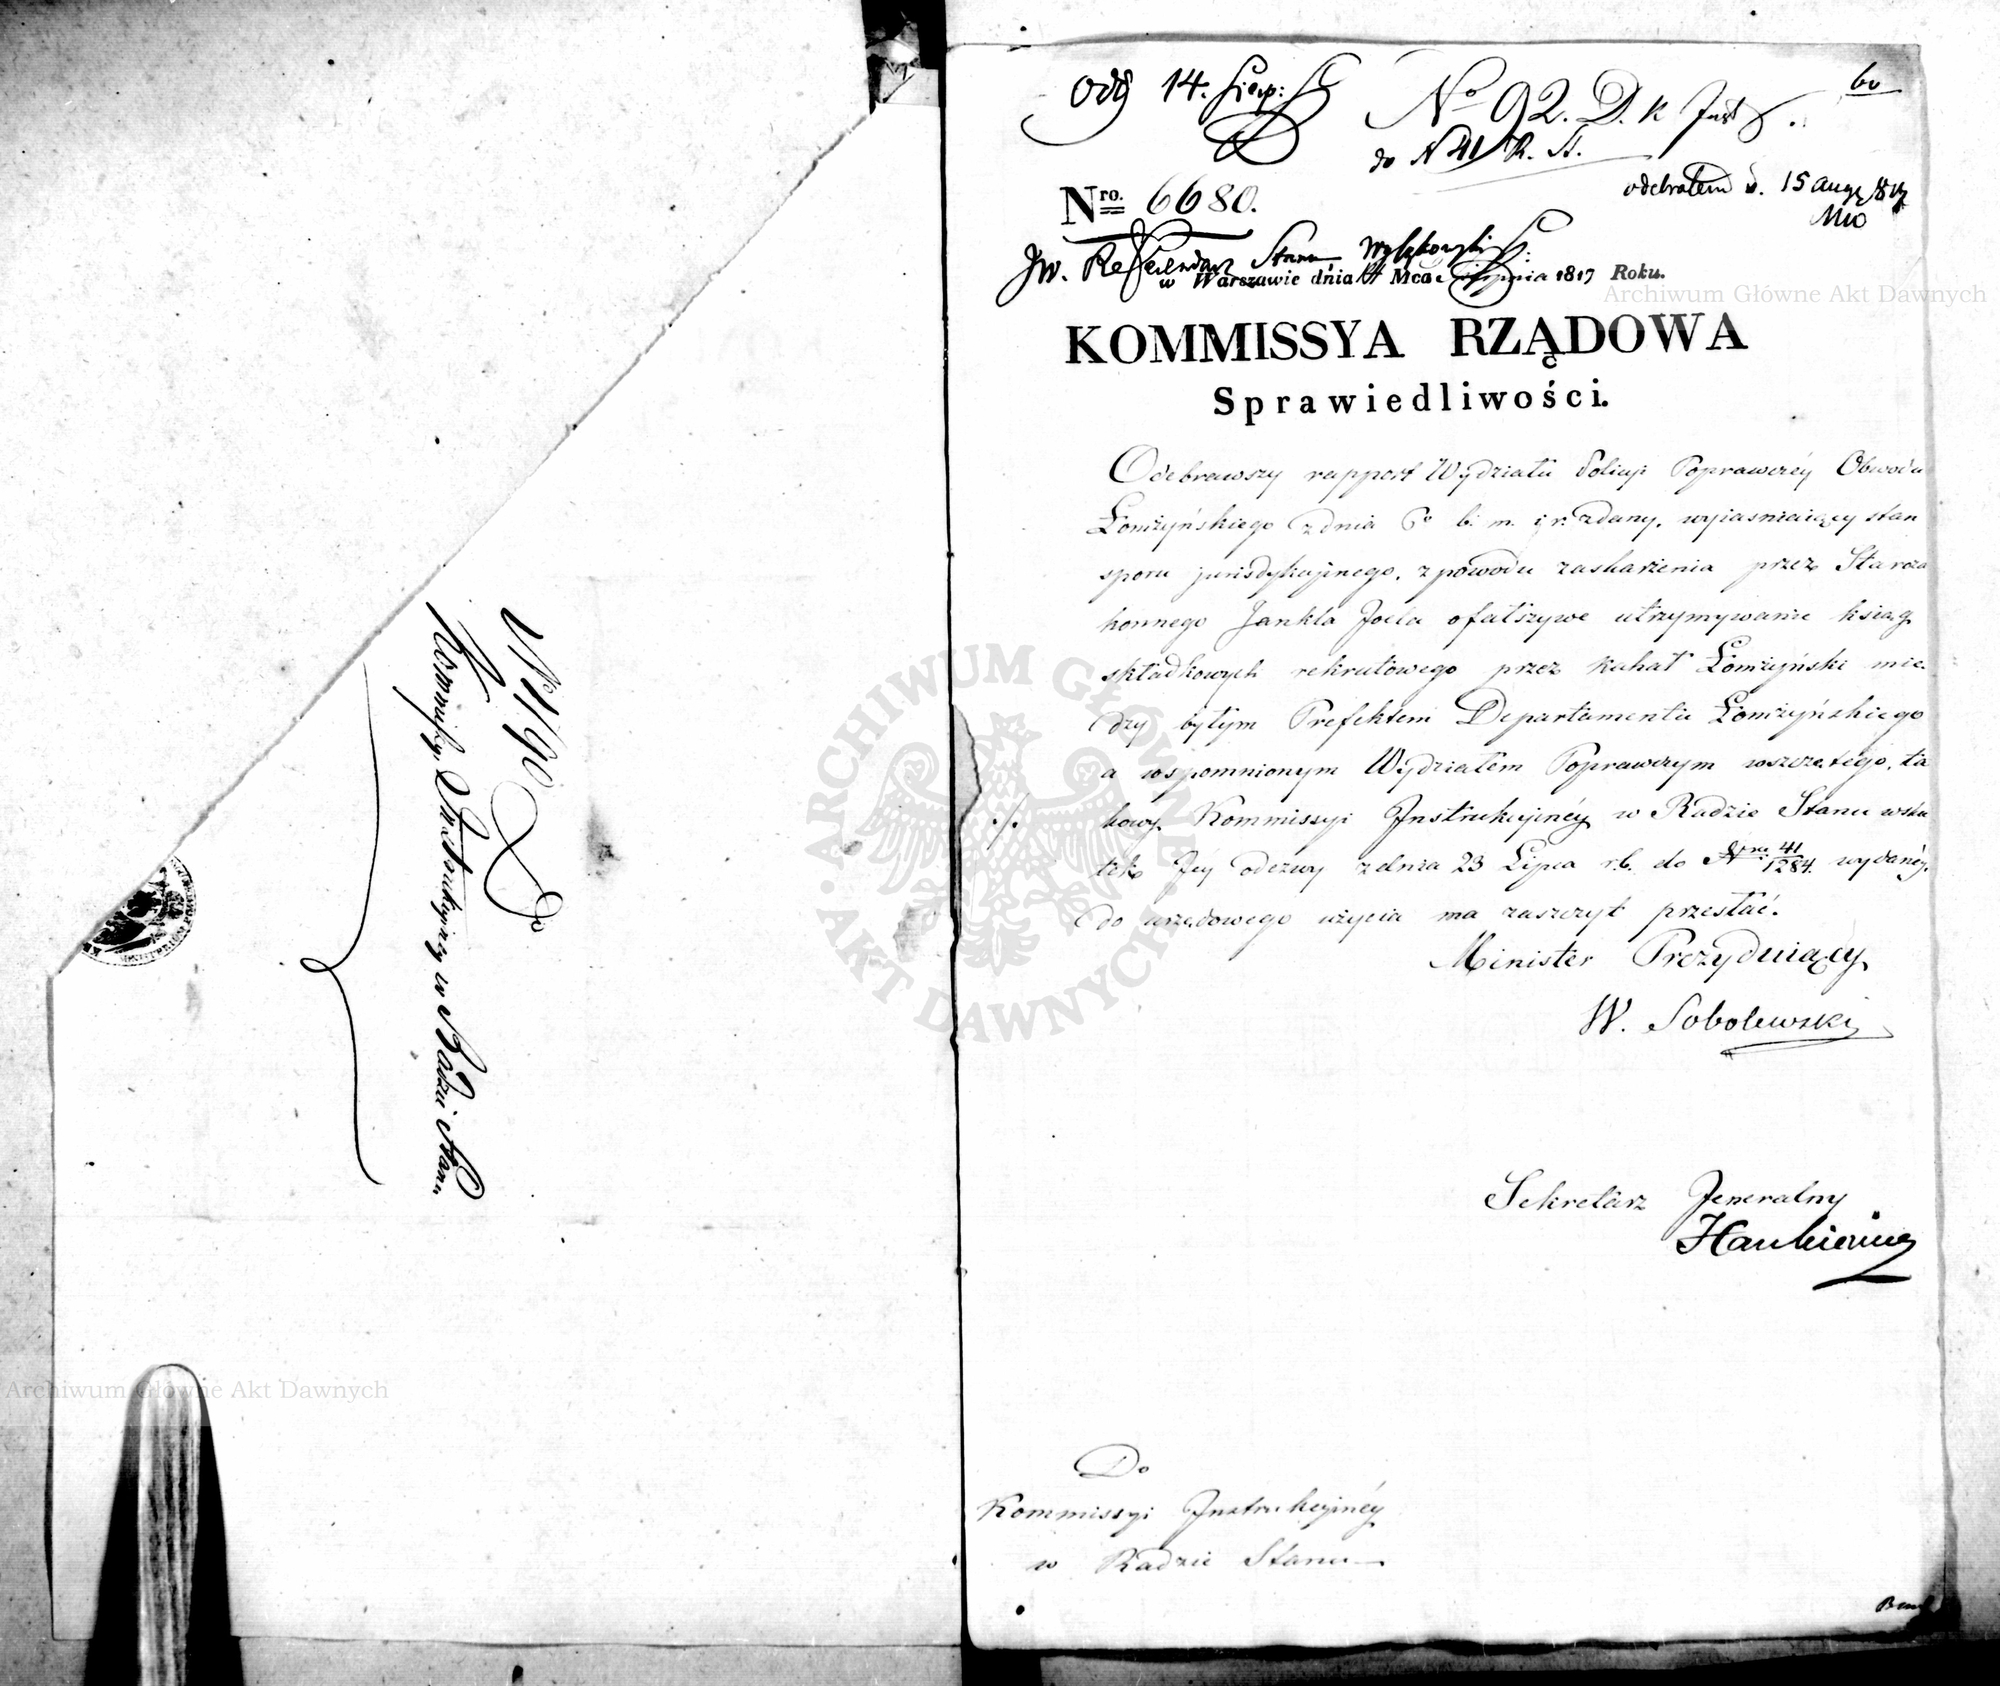 No 190
Do
Kommissyi Instrukcyjnej w Radzie Stanu
60
Odd 14. Sierp:
No 92. D. K. Inst.
do N 41 R. S.
odebrałem d. 15 aug 1817
Nro. 6680.
Jw. Referendarz Stanu
w Warszawie dnia 14 Mca Sierpnia 1817 Roku.
KOMMISSYA RZĄDOWA
Sprawiedliwości.
Odebrawszy rapport Wydziału Policyi Poprawczéy Obwodu
Łomżyńskiego z dnia 6o b. m. i r. zdany, wyiaśniaiący stan
sporu jurisdykcyinego, z powodu zaskarżenia przez Staroza
konnego Jankla Joela o fałszywe utrzymywanie ksiąg
składkowych rekrutowego przez kahał Łomżyński mie
dzy byłym Prefektem Departamentu Łomżyńskiego
a wspomnionym Wydziałem Poprawczym wszczętego, ta
kowy Kommissyi Instrukcyinéy w Radzie Stanu wsku
tek Jéy odezwy z dnia 23 Lipca r. b. do Nru 41/1284. wydanéy,
do urzędowego użycia ma zaszczyt przesłać.
Minister Prezyduiący
W. Sobolewski
Sekretarz Jeneralny
Hankiewicz
Do
Kommissyi Instrukcyinéy
w Radzie Stanu
ARCHIWUM GŁÓWNE AKT DAWNYCH
Archiwum Główne Akt Dawnych
Archiwum Główne Akt Dawnych